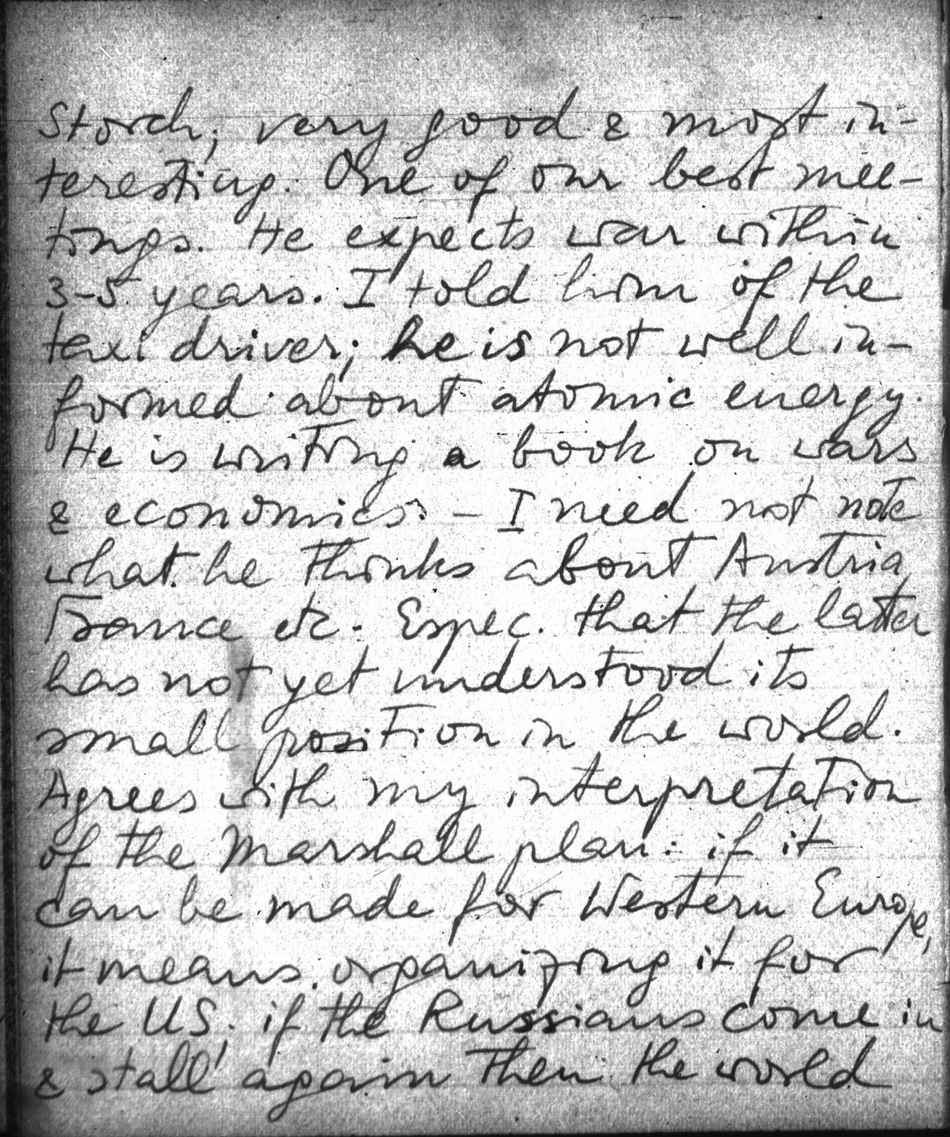 Storch; very good & most in-
teresting. One of our best mee-
tings. He expects war within
3-5 years. I told him of the
taxi driver; he is not well in-
formed about atomic energy.
He is writing a book on wars
& economics. - I need not note
what he thinks about Austria
France etc. Espec. that the latter
has not yet understood its
small position in the world.
Agrees with my interpretation
of the Marshall plan: if it
can be made for Western Europe,
it means organizing it for
the US; if the Russians come in
& stall again then the world